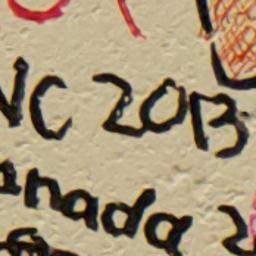 NC 2013
anada 2